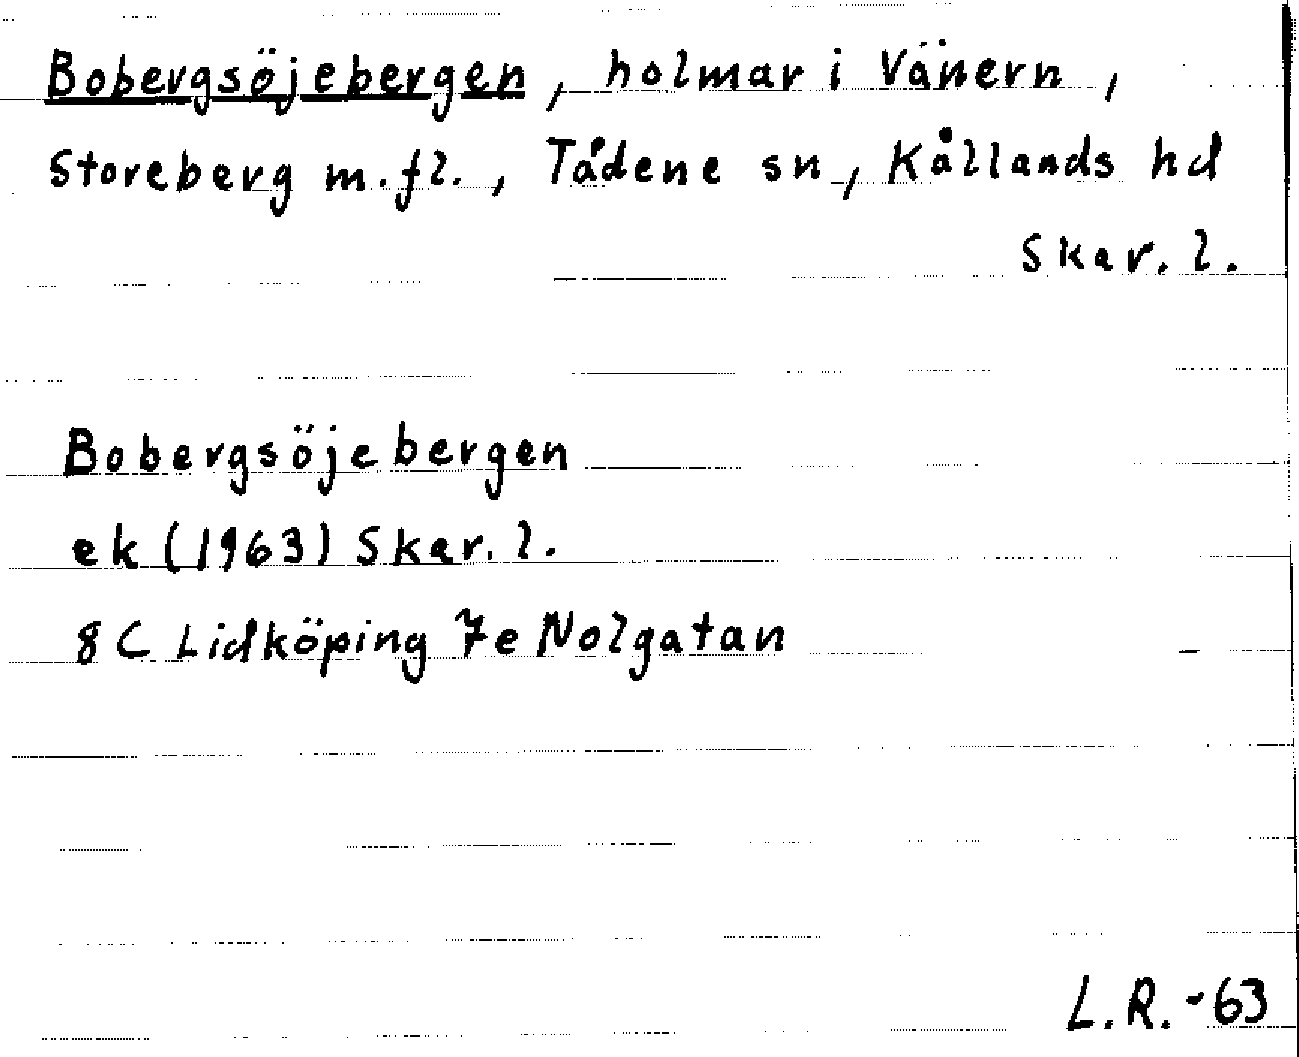 Bobergsöjebergen, holmar i Vänern,
Storeberg m.fl., Tådene sn, Kållands hd
Skar. l.
Bobergsöjebergen
ek (1963) Skar. l.
8 C Lidköping 7e Nolgatan
L.R. -63